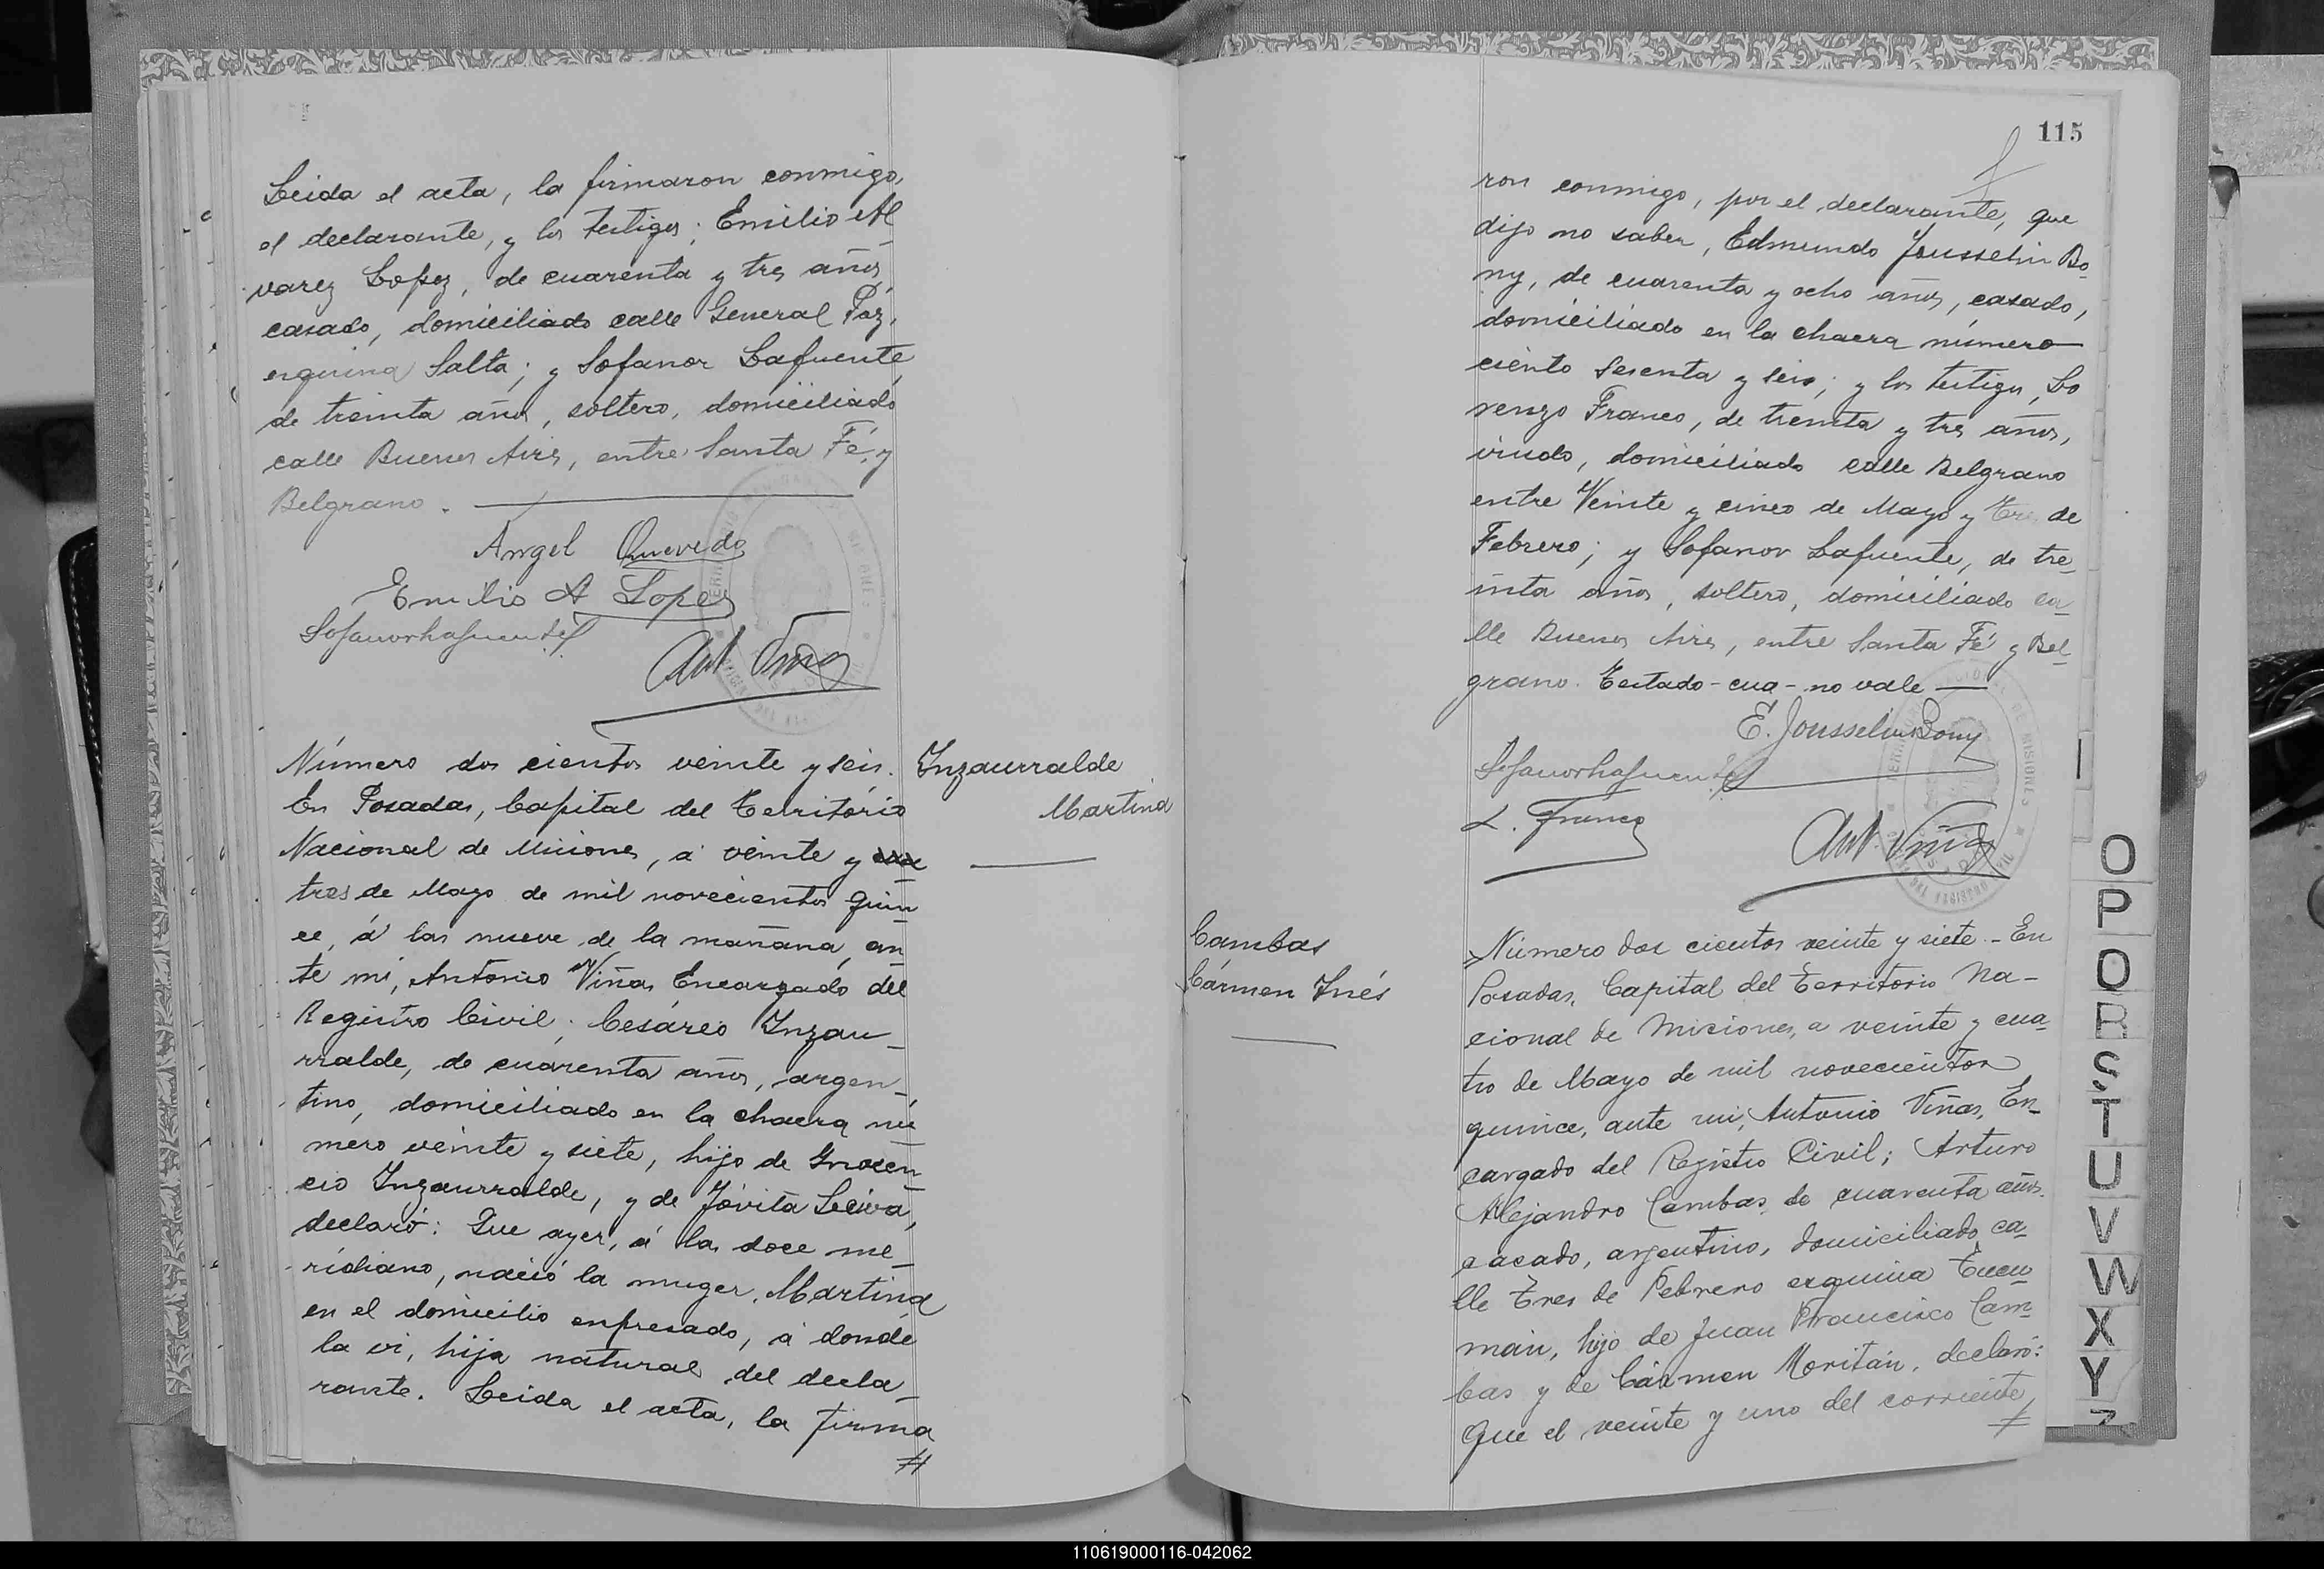 Leida el acta, la firmaron conmigo,
el declarante, y los testigos; Emilio Al
varez Lopez, de cuarenta y tres años,
casado, domiciliado calle General Páz,
esquina Salta; y Sofanor Lafuente,
de treinta años, soltero, domiciliado
calle Buenos Aires, entre Santa Fé, y
Belgrano.
Angel Quevedo
Emilio A Lopez
Sofanor Lafuente
Ant Viñas
Número dos cientos veinte y seis.
En Posadas, Capital del Territorio
Nacional de Misiones, á veinte y
tres de Mayo de mil novecientos quin
ce, á las nueve de la mañana, an
te mi, Antonio Viñas Encargado del
Registro Civil; Cesáreo Inzau
rralde, de cuarenta años, argen
tino, domiciliado en la chacra nú
mero veinte y siete, hijo de Inocen
cio Inzaurralde, y de Jóvita Leiva,
declaró: Que ayer, á las doce me
ridiano, nació la muger, Martina
en el domicilio expresado, á donde
la vi, hija natural del decla
rante. Leida el acta, la firma
#
Inzaurralde
Martina
115
ron conmigo, por el declarante, que
dijo no saber, Edmundo Jousselin Bo
ny, de cuarenta y ocho años, casado,
domiciliado en la chacra número
ciento sesenta y seis; y los testigos, Lo
renzo Franco, de treinta y tres años,
viudo, domiciliado calle Belgrano
entre Veinte y cinco de Mayo y Tres de
Febrero; y Sofanor Lafuente, de tre
inta años, soltero, domiciliado ca
lle Buenos Aires, entre Santa Fé y Bel
grano. Testado - cua - no vale
E. Jousselin Bony
Sofanor Lafuente
L. Franco
Ant. Viñas
Cambas
Cármen Inés
Número dos cientos veinte y siete - En
Posadas, Capital del Territorio Na-
cional de Misiones, a veinte y cua
tro de Mayo de mil novecientos
quince, ante mi, Antonio Viñas, En-
cargado del Registro Civil; Arturo
Alejandro Cambas, de cuarenta años,
casado, argentino, domiciliado, ca-
lle Tres de Febrero esquina Tucu
mán, hijo de Juan Francisco Cam
bas y de Cármen Moritán, declaró:
Que el veinte y uno del corriente,
#
O
P
Q
R
S
T
U
V
W
X
Y
Z
110619000116-042062